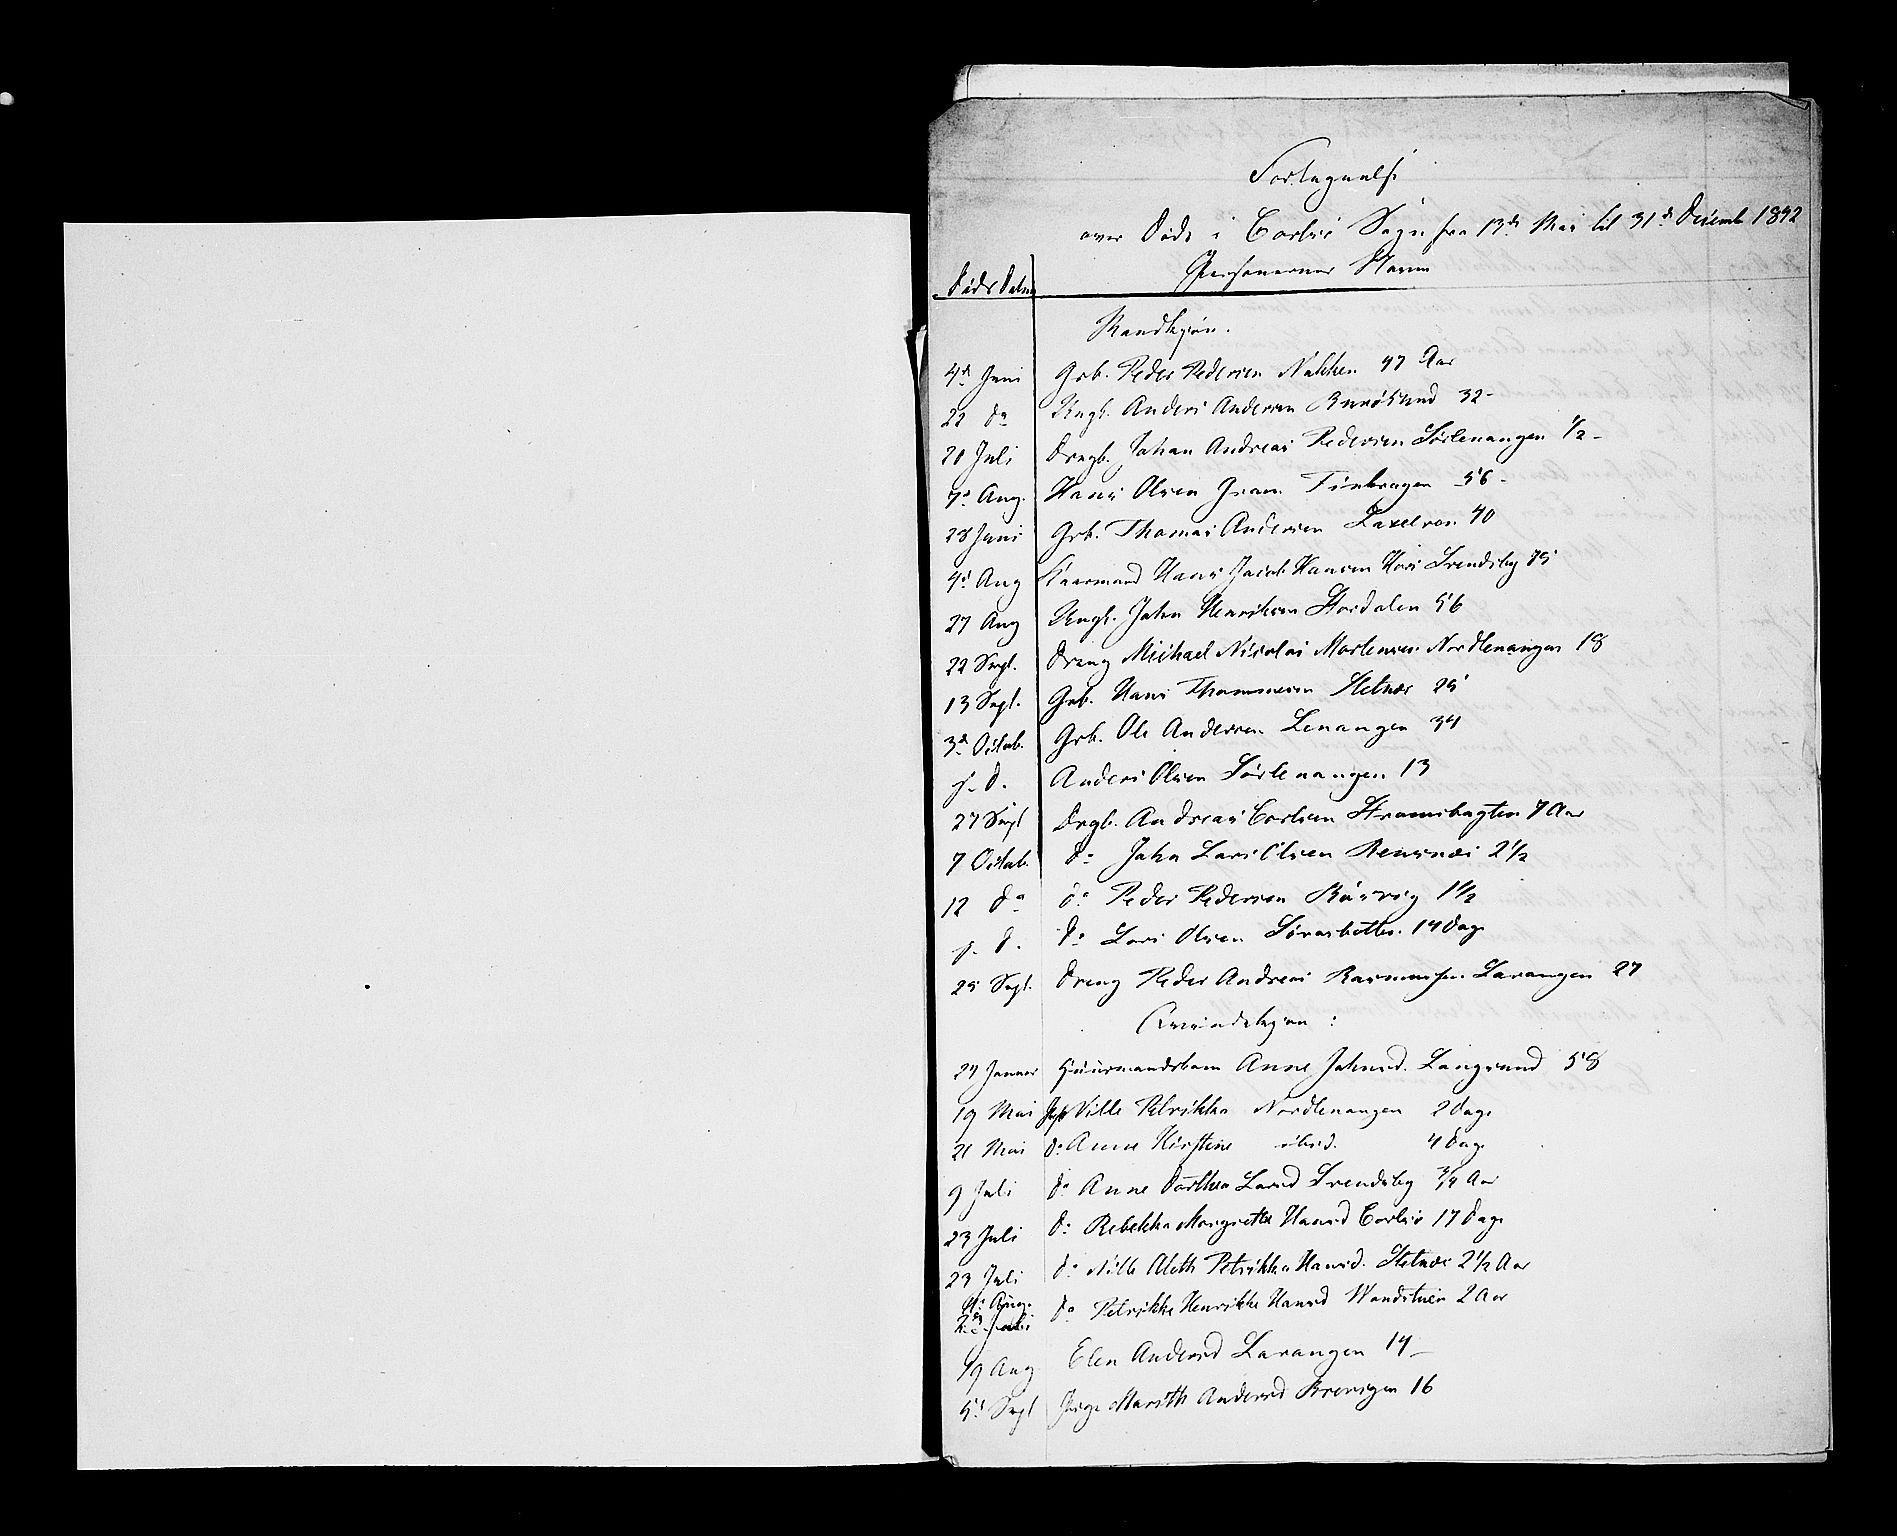 Fortegnelse
over Døde i Carlsø Sogn fra 13de Mai til 31de Decemb 1842
Døds Datum Personernes Navn
Mandkjøn.
4de Juni Grb. Peder Pedersen Nakken 47 Aar
22 do Ungk. Anders Andersen 32 -
20 Juli Drngb. Johan Andreas Pedersen Sørlenangen 1/2 -
7de Aug. Hans Olsen Finkrogen 56 -
28 Juni Grb. Thomas Andersen 40
4de Aug Kaarmand Hans Jacob Hansen Svendsby 75
27 Aug Ungk. John Henriksen Stordalen 56
22 Sept. Dreng Michael Nicolai Mortensen Nordlenangen 18
13 Sept. Grb. Hans Thommesen Stetnæs 25
3de Octob. Grb. Ole Andersen Lenangen 34
s. D. Anders Olsen Sørlenangen 13
27 Sept Drgb. Andreas Carlsen 7 Aar
7 Octob. do John Lars Olsen Rensnæs 2 1/2
12 do do Peder Pedersen 1 1/2
s. d. do Lars Olsen 14 Dage
25 Sept. Dreng Peder Andreas Rasmussen Lavangen 27
Qvindekjøn :
27 Januar Huusmandskone Anne Johnsd. Langsund 58
19 Mai Nille Petrikka Nordlenangen 2 Dage
21 Mai do Anne Kirstine ibid. 4 Dage
9 Juli do Anne Dorthea Larsd Svendsby 3/4 Aar
23 Juli do Rebekka Margrethe Hansd Carlsø 17 Dage
23 Juli do Nille Aleth Petrikka Hansd. Stetnæs 2 1/2 Aar
Aug. do Petrikke Henrikke Hansd 2 Aar
19 Aug Elen Andersd Lavangen 14 -
5te Sept Pige Marith Andersd 16